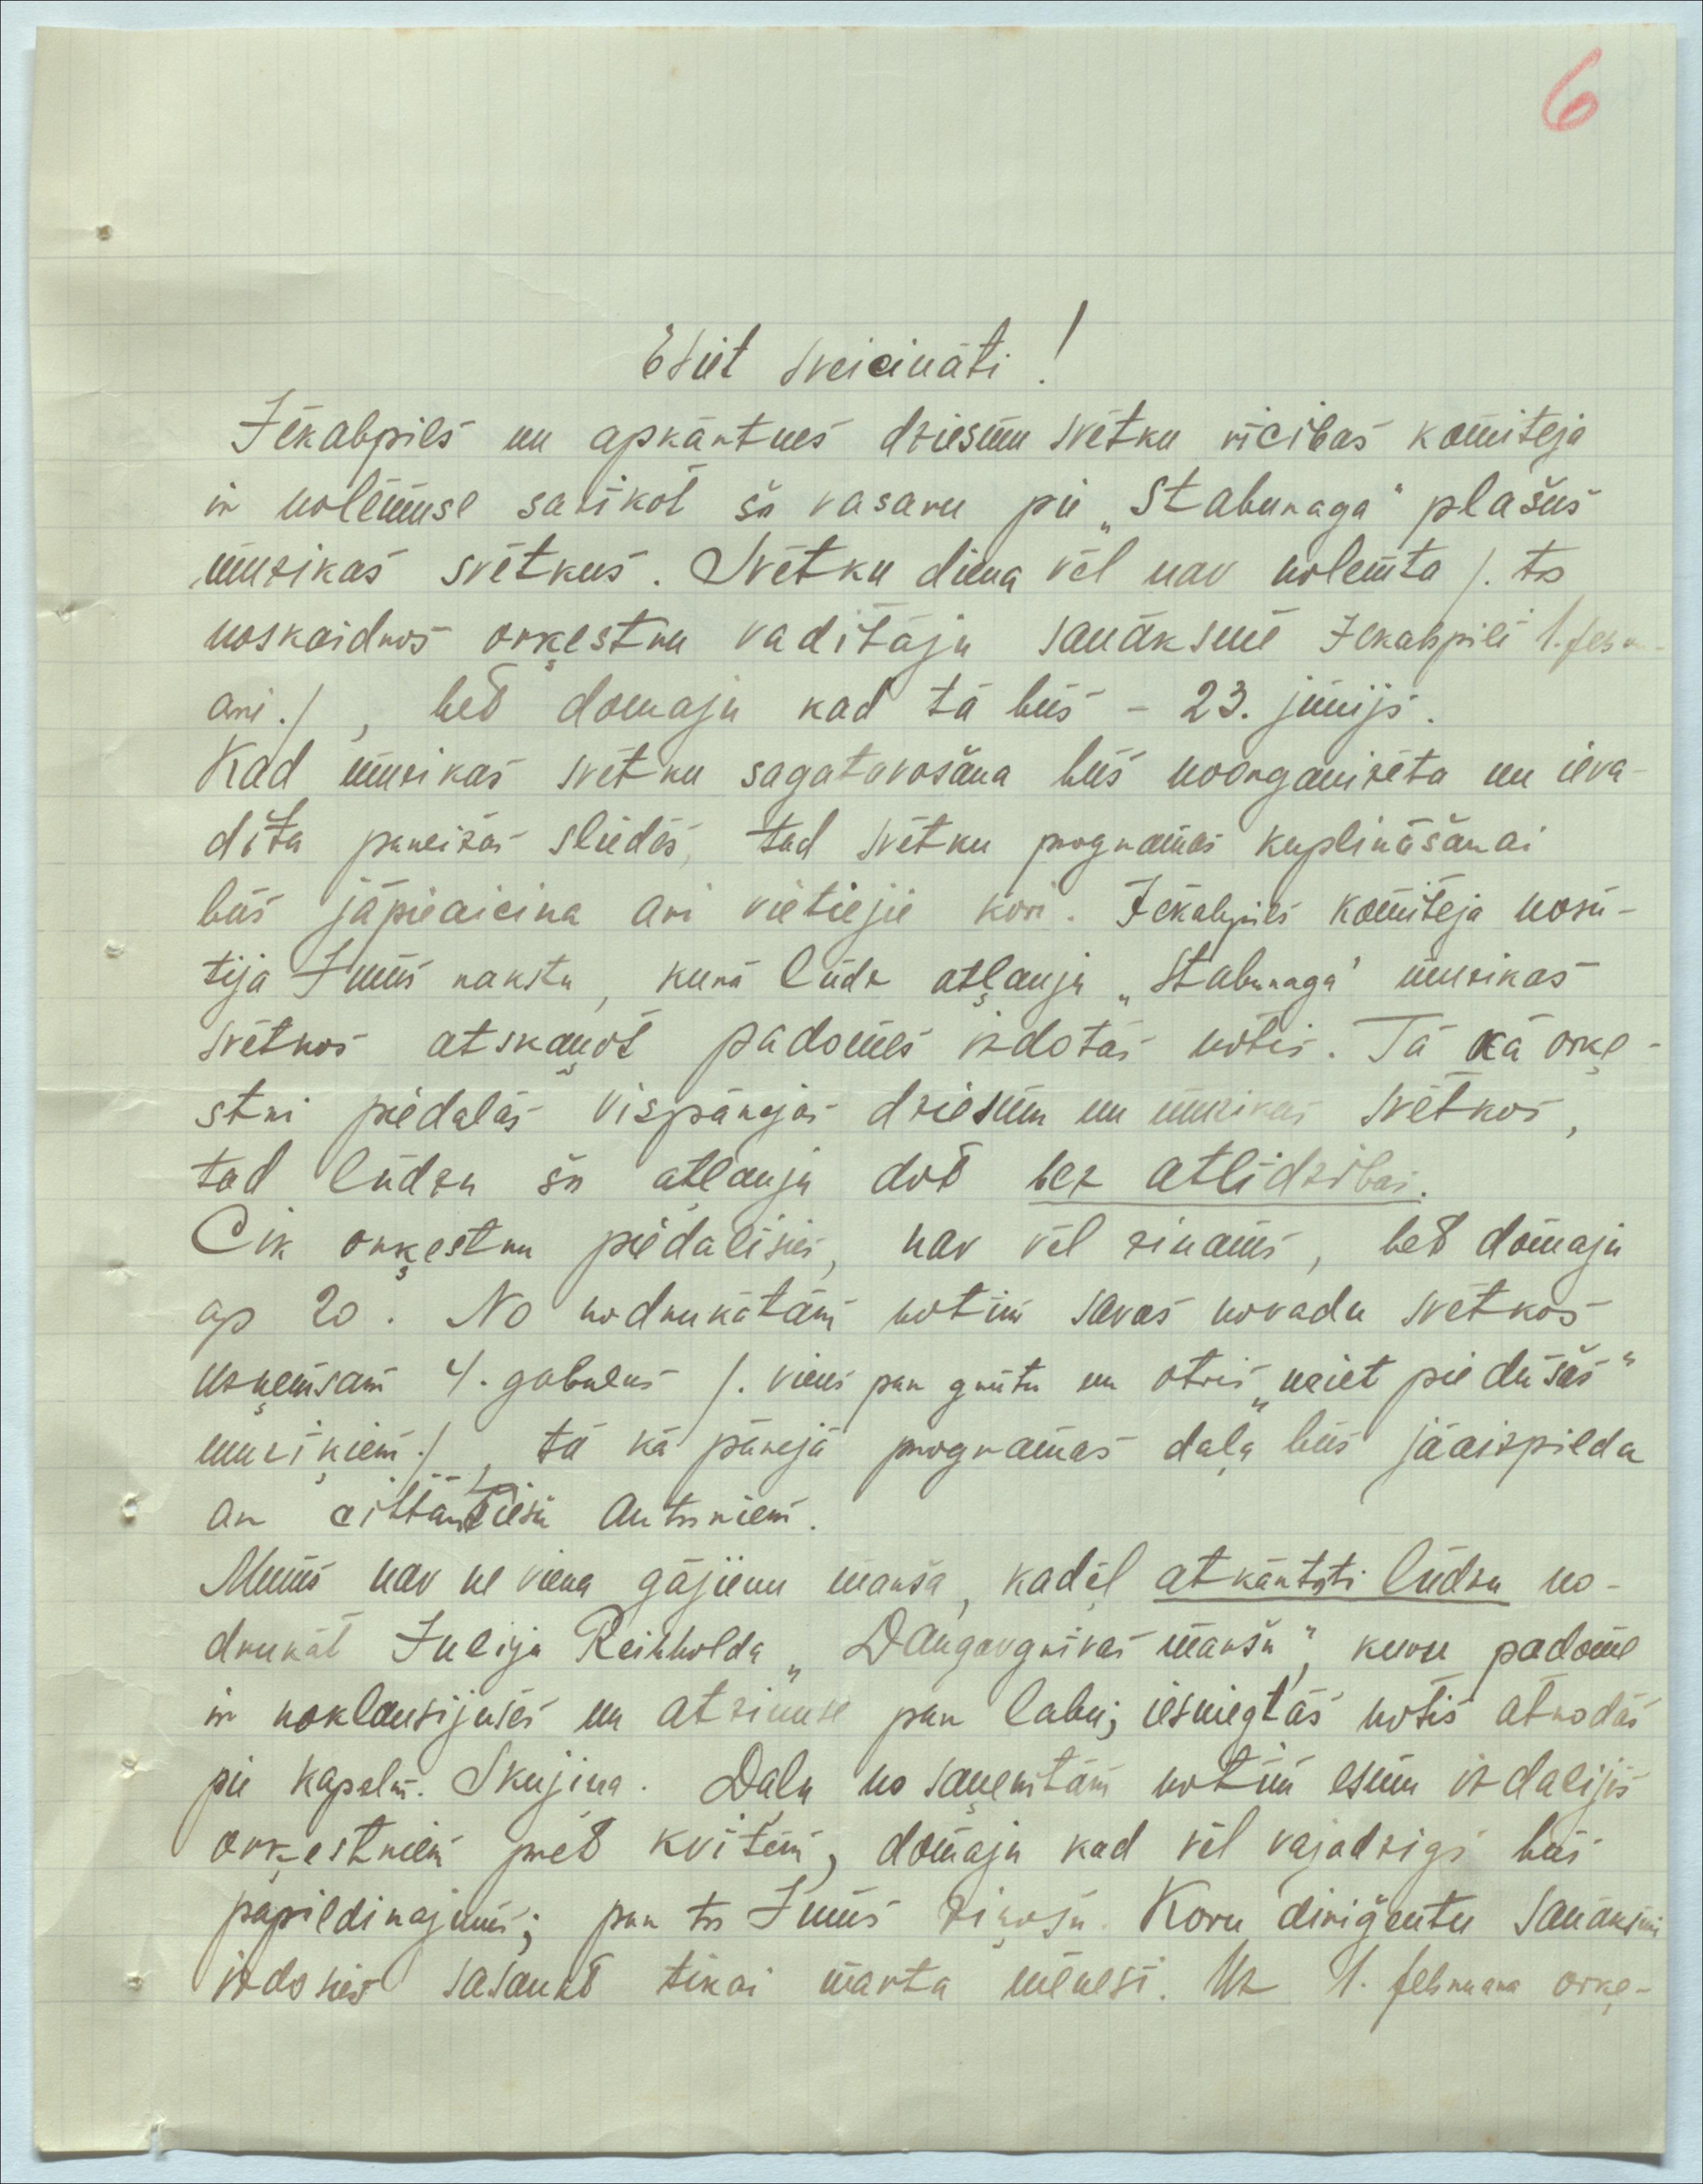 6
Esiet sveicināti!
Jēkabpils un apkārtnes dziesmu svētku rīcības komiteja
ir nolēmuse sarīkot šo vasaru pie „Staburaga" plašus
mūzikas svētkus. Svētku diena vēl nav nolemta /. to
noskaidros orķestru vadītāju sanāksmē Jēkabpilī 1. febr-
arī./, bet domaju kad tā būs – 23. jūnijs.
Kad mūzikas svētku sagatavošana būs noorganizēta un ieva-
dīta pareizās sliedēs, tad svētku programas kuplināšanai
būs jāpieaicina arī vietiejie kori. Jēkabpils komiteja nosū-
tija Jums rakstu, kurā lūdz atļauju „Staburaga" mūzikas
svētkos atskaņot padomes izdotās notis. Tā kā orķe-
stri piedalās vispārejos dziesmu un mūzikas svētkos,
tad lūdzu šo atļauju dot bez atlīdzības.
Cik orķestru piedalīsies, nav vēl zinams, bet domaju
ap 20. No nodrukātām notīm savos novadu svētkos
uzņemsam 4. gabalus /. viens par grūtu un otris „neiet pie dūšas"
muziķiem./, tā kā pārejā programas daļa būs jāaizpilda
ar cittautiešu autoriem.
Mums nav ne viena gājienu marša, kadēļ atkārtoti lūdzu no-
drukāt Julija Reinholda „Daugavgrīvas maršu", kuru padome
ir noklausijusēs un atzinuse par labu; iesniegtās notis atrodās
pie kapelm. Skujiņa. Daļu no saņemtām notīm esmu izdalijis
orķestriem pret kvītēm, domaju kad vēl vajadzīgs būs
papildinajums; par to Jums ziņošu. Koru diriģentu sanāksmi
izdosies sasaukt tikai marta mēnesī. Uz 1. februara orķe-